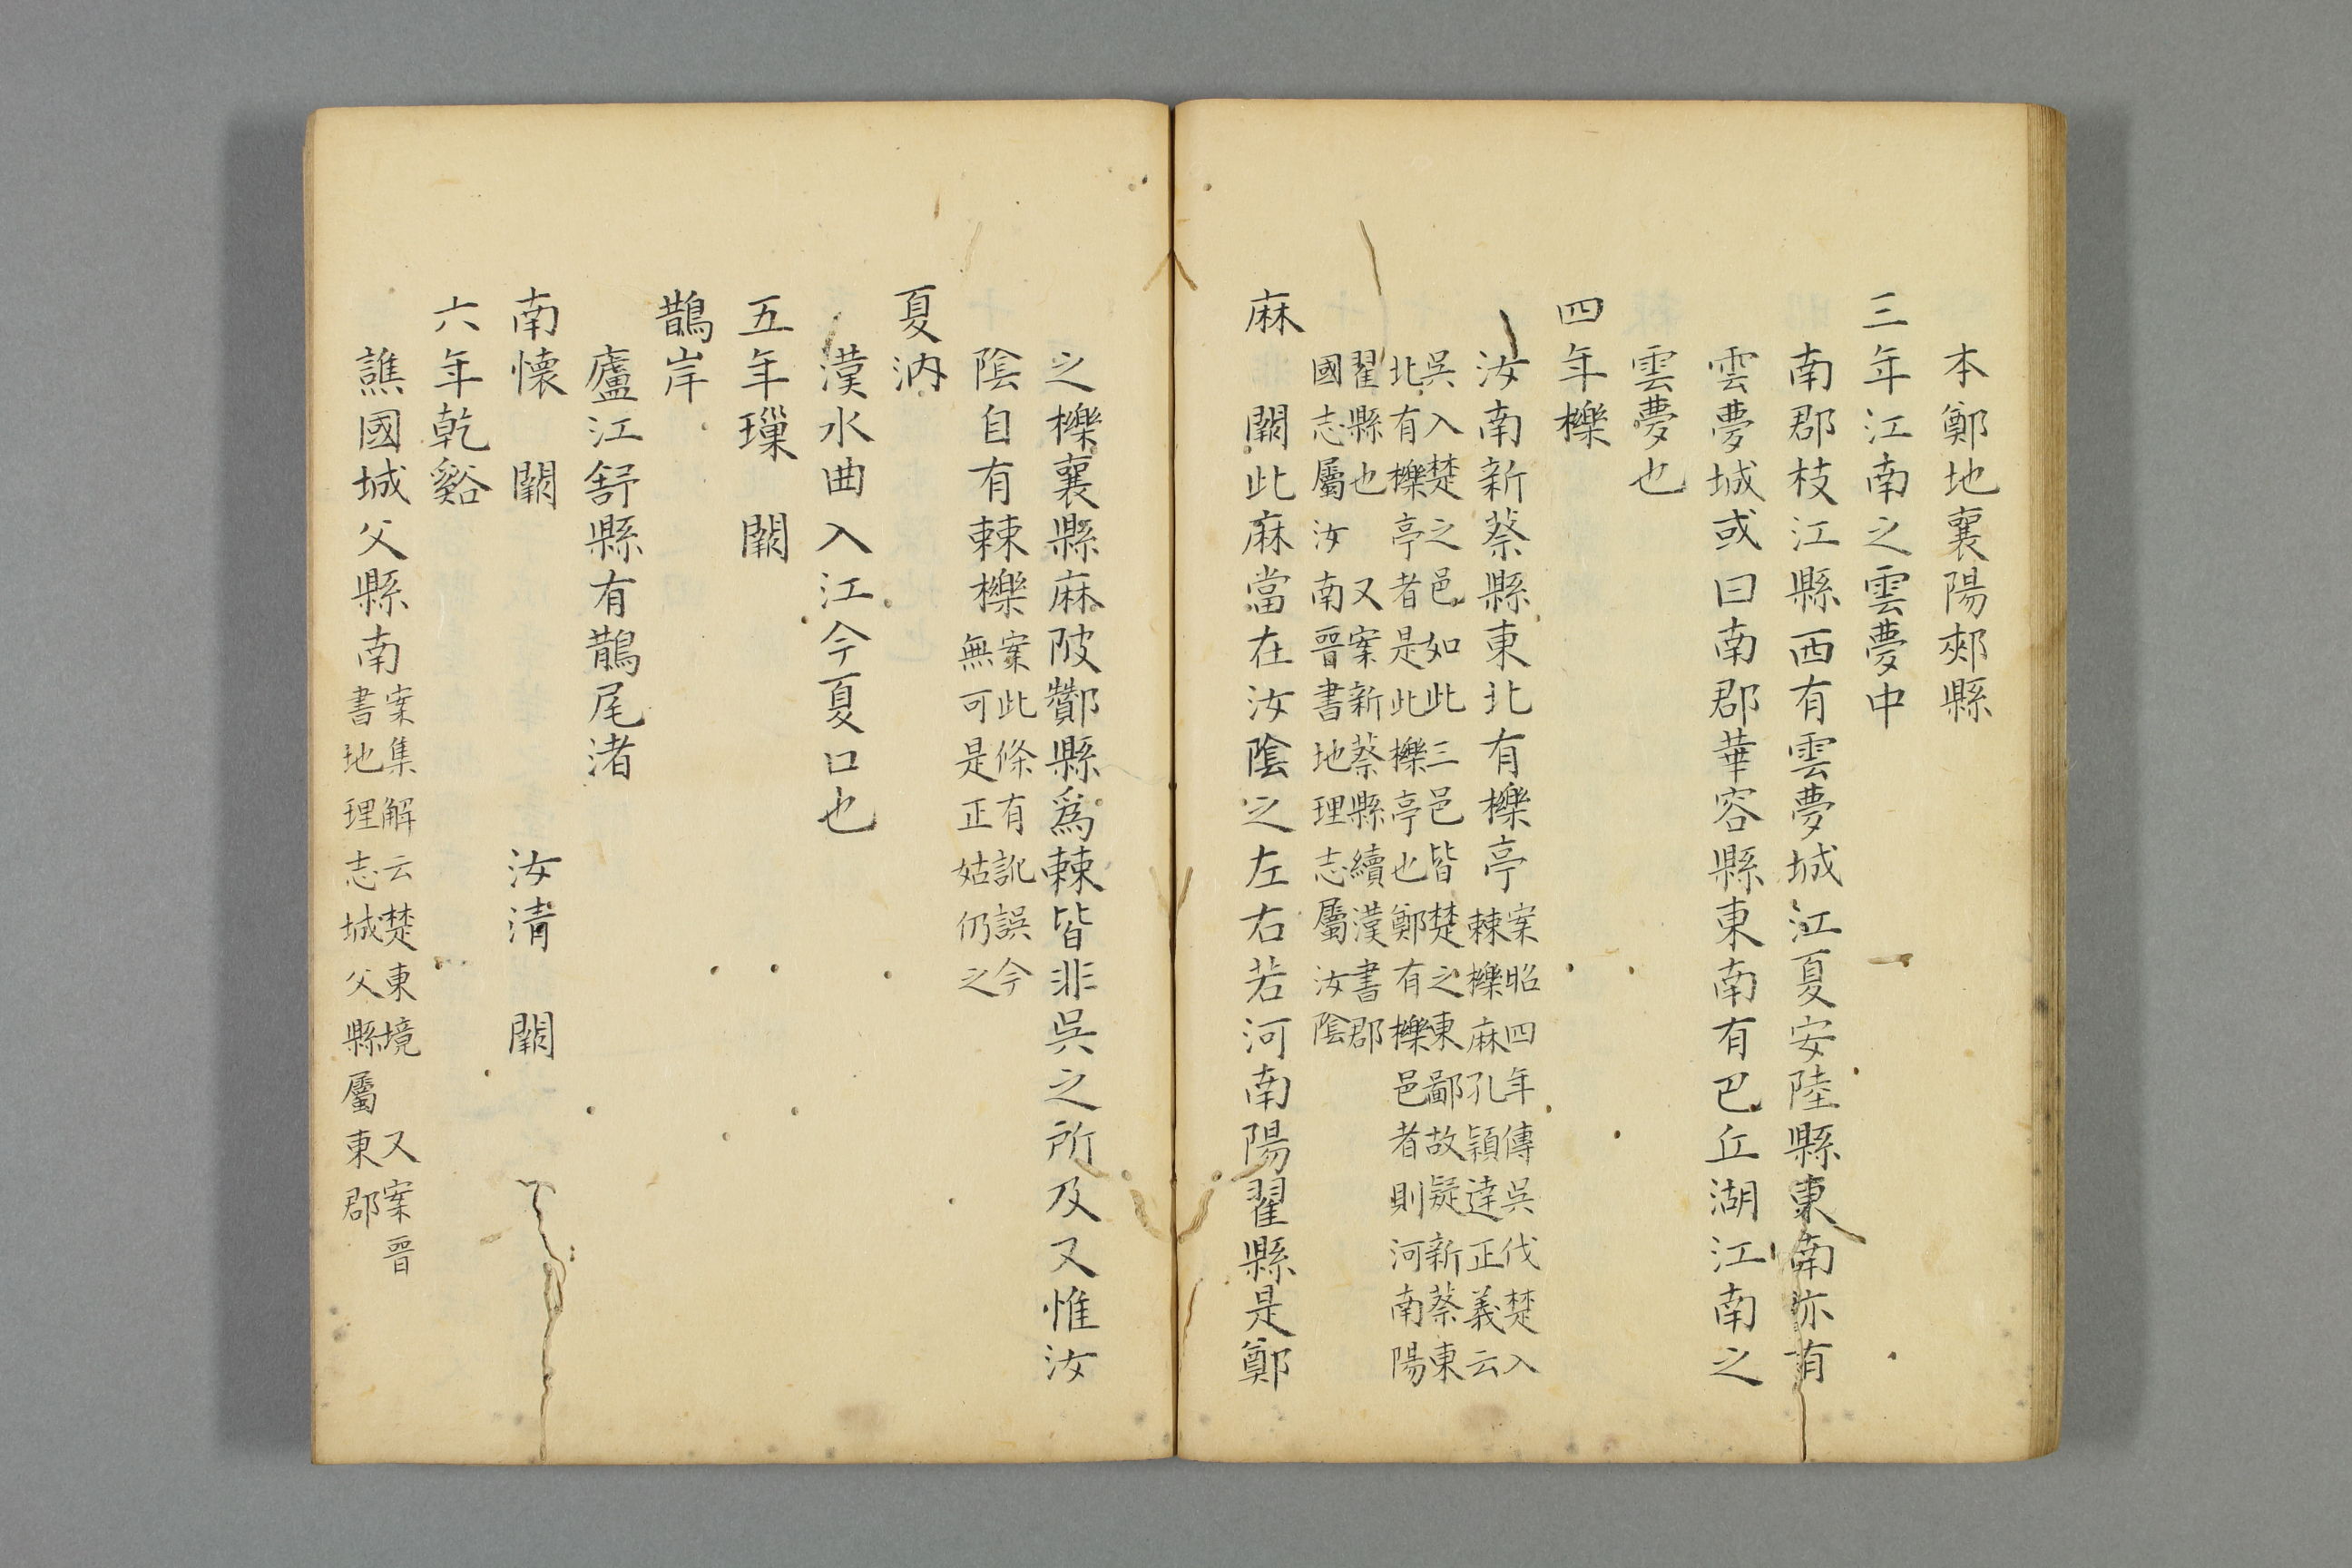 本鄭地襄陽郟縣
三年江南之雲夢中
南郡枝江縣西有雲夢城江夏安陸縣東南亦有
雲夢城或曰南郡華容縣東南有巴丘湖江南之
雲夢也
四年櫟
汝南新蔡縣東北有櫟亭案昭四年傳吳伐楚入
棘櫟麻孔穎達正義云
吳入楚之邑如此三邑皆楚之東鄙故疑新蔡東
北有櫟亭者是此櫟亭也鄭有櫟邑者則河南陽
翟縣也又案新蔡縣續漢書郡
國志屬汝南晉書地理志屬汝陰
麻 闕此麻當在汝陰之左右若河南陽翟縣是鄭
之櫟襄縣麻陂酇縣爲棘皆非吳之所及又惟汝
陰自有棘櫟案此條有訛誤今
無可是正姑仍之
夏汭
漢水曲入江今夏口也
五年璅 闕
鵲岸
廬江舒縣有鵲尾渚
南懷 闕 汝清 闕
六年乾谿
譙國城父縣南案集解云楚東境 又案晉
書地理志城父縣屬東郡